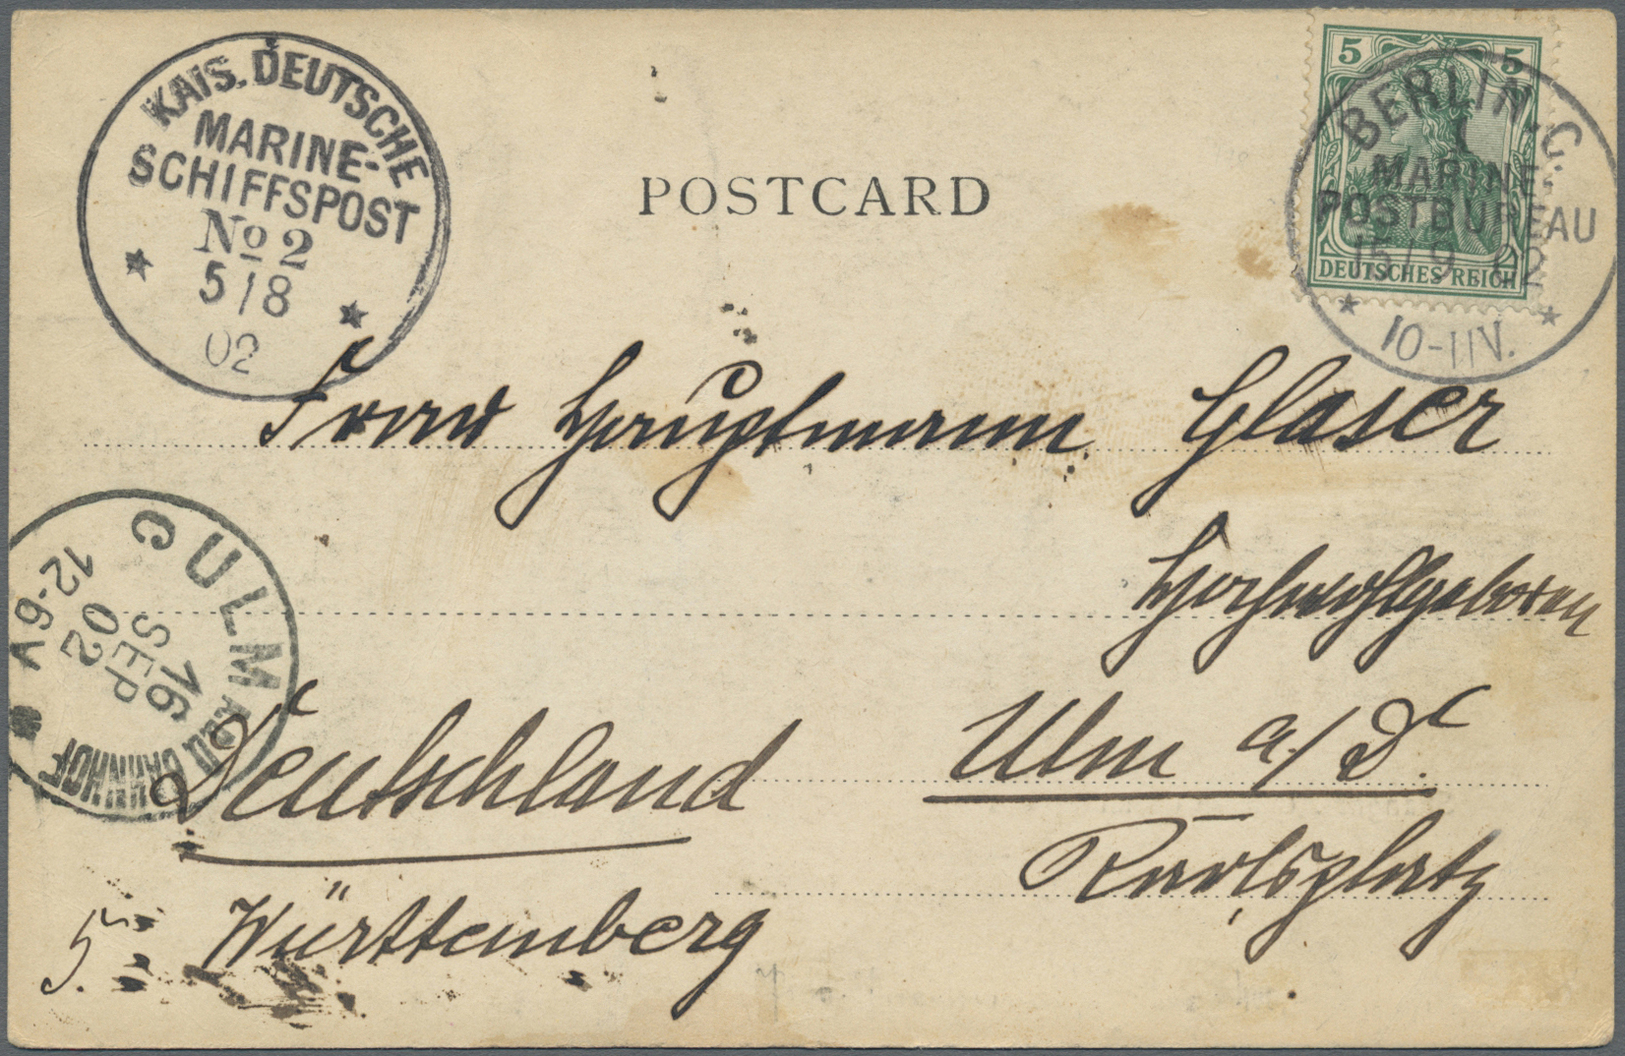 KAIS. DEUTSCHE
MARINE-
SCHIFFSPOST
No 2
5/8
02
POSTCARD
5 5
DEUTSCHES REICH
BERLIN. C.
MARINE-
POSTBUREAU
15/9 02
10-11V.
Frau Hauptmann Glaser
Hochwohlgeboren
ULM
C
16
SEP
02
12-6V
BAHNHOF
Deutschland
Ulm a/D.
Karlsplatz
5.
Württemberg